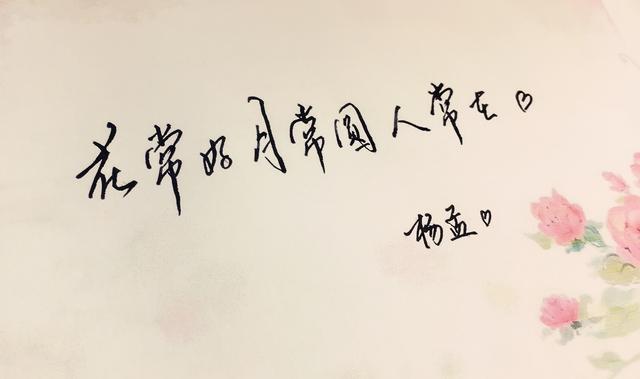 花常好月常圆人常在♡
杨孟♡